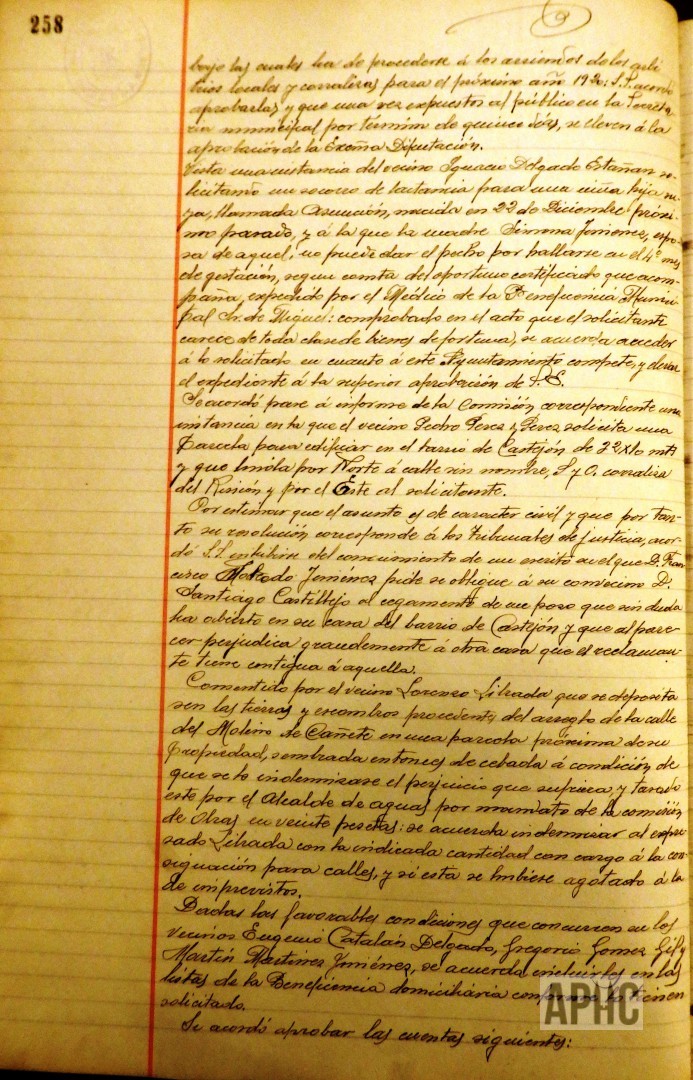 258
bajo las cuales ha de procederse á los arriendos de los arbi
trios locales y corralizas para el próximo año 1920: S.S. acordó
aprobarlas y que una vez expuestos al público en la Secreta
ria municipal por término de quince días, se eleven á la
aprobación de la Excma Diputación.
Vista una instancia del vecino Ignacio Delgado Estañan so-
licitando un socorro de lactancia para una niña hija su-
ya, llamada Asunción, nacida en 22 de Diciembre próxi-
mo pasado, y á la que la madre Simona Jimenez, espo-
sa de aquel, no puede dar el pecho por hallarse en el 4º mes
de gestación, segun consta del oportuno certificado que acom-
paña, expedido por el Médico de la Beneficencia Munici-
pal Sr. de Miguel: comprobado en el acto que el solicitante
carece de toda clase de bienes de fortuna, se acuerda acceder
á lo solicitado en cuanto á este Ayuntamiento compete, y elevar
el expediente á la superior aprobación de S.E.
Se acordó pase á informe de la Comisión correspondiente una
instancia en la que el vecino Pedro Perez y Perez solicita una
Parcela para edificar en el barrio de Castejón de 22x10 mts
y que linda por Norte á calle sin nombre, S. y O. corraliza
del Rincón y por el Este al solicitante.
Por estimar que el asunto es de caracter civil y que por tan-
to su resolución corresponde á los tribunales de justicia, acor-
dó S.S. inhibirse del conocimiento de un escrito en el que D. Fran
cisco Jiménez pide se obligue á su convecino D.
Santiago Castillejo al cegamento de un pozo que sin duda
ha abierto en su casa del barrio de Castejón y que al pare-
cer perjudica grandemente á otra casa que el reclaman-
te tiene contigua á aquella.
Consentido por el vecino Lorenzo Librada que se deposita
sen las tierras y escombros procedentes del arreglo de la calle
del Molino de Cañete en una parcela próxima de su
Propiedad, sembrada entonces de cebada á condición de
que se le indemnizase el perjuicio que sufriera, y tasado
este por el Alcalde de aguas por mandato de la comisión
de Obras en veinte pesetas: se acuerda indemnizar al expre
sado Librada con la indicada cantidad con cargo á la con-
signación para calles, y si esta se hubiese agotado á la
de imprevistos.
Dadas las favorables condiciones que concurren en los
vecinos Eugenio Catalán Delgado, Gregorio Gomez Gil y
Martín Martinez Jiménez, se acuerda incluirles en las
listas de la Beneficencia domiciliaria conforme lo tienen
solicitado.
Se acordó aprobar las cuentas siguientes:
APHC